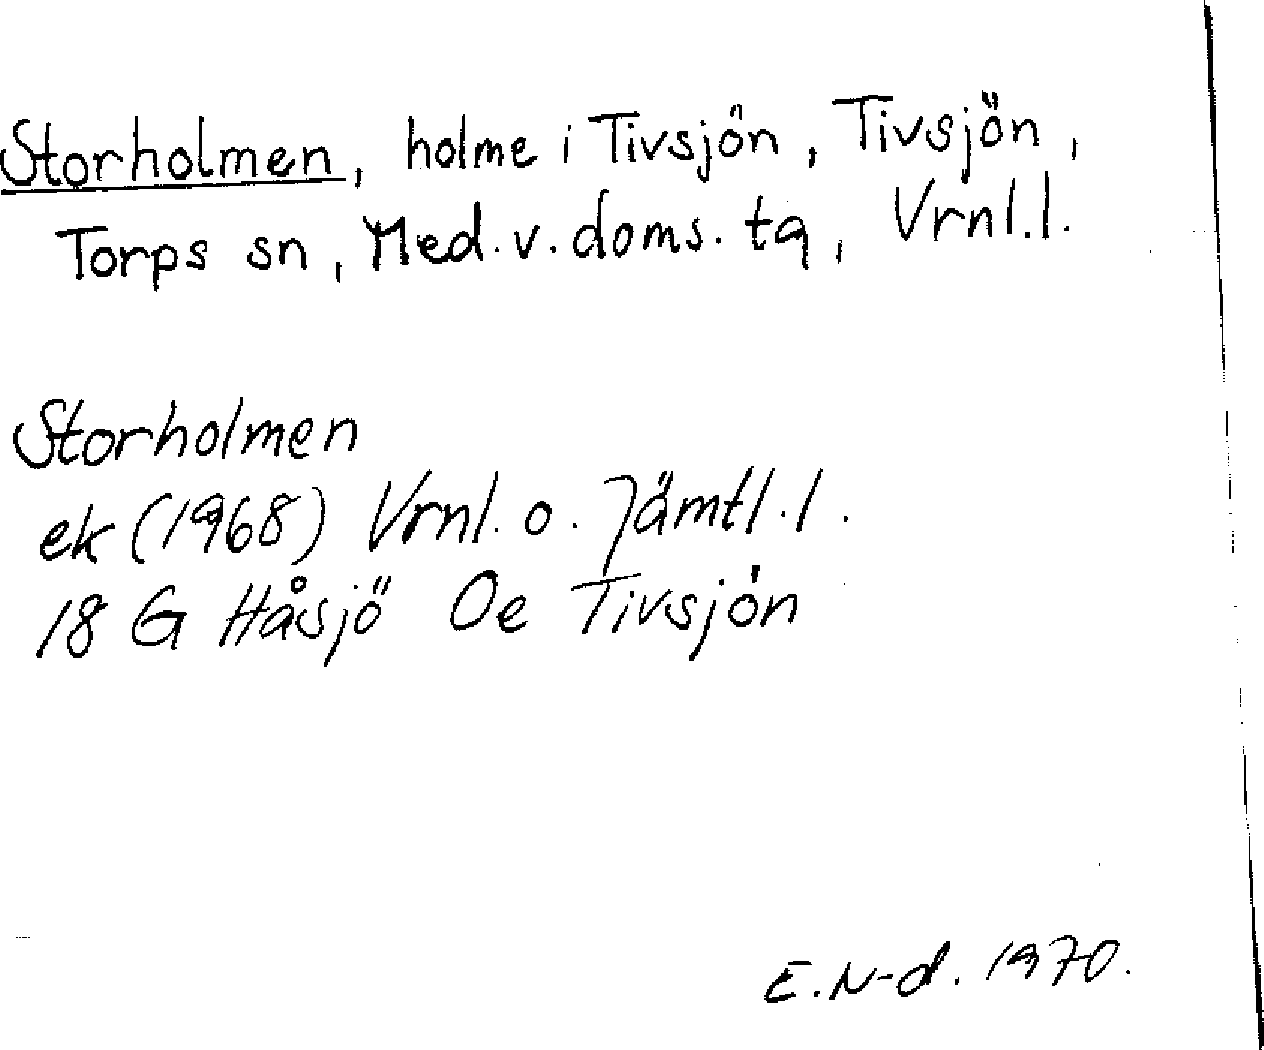 Storholmen, holme i Tivsjön, Tivsjön,
Torps sn, Med. v. doms. tg, Vrnl. l.
Storholmen
ek (1968) Vrnl. o. Jämtl. l.
18 G Håsjö Oe Tivsjön
E. N-d. 1970.